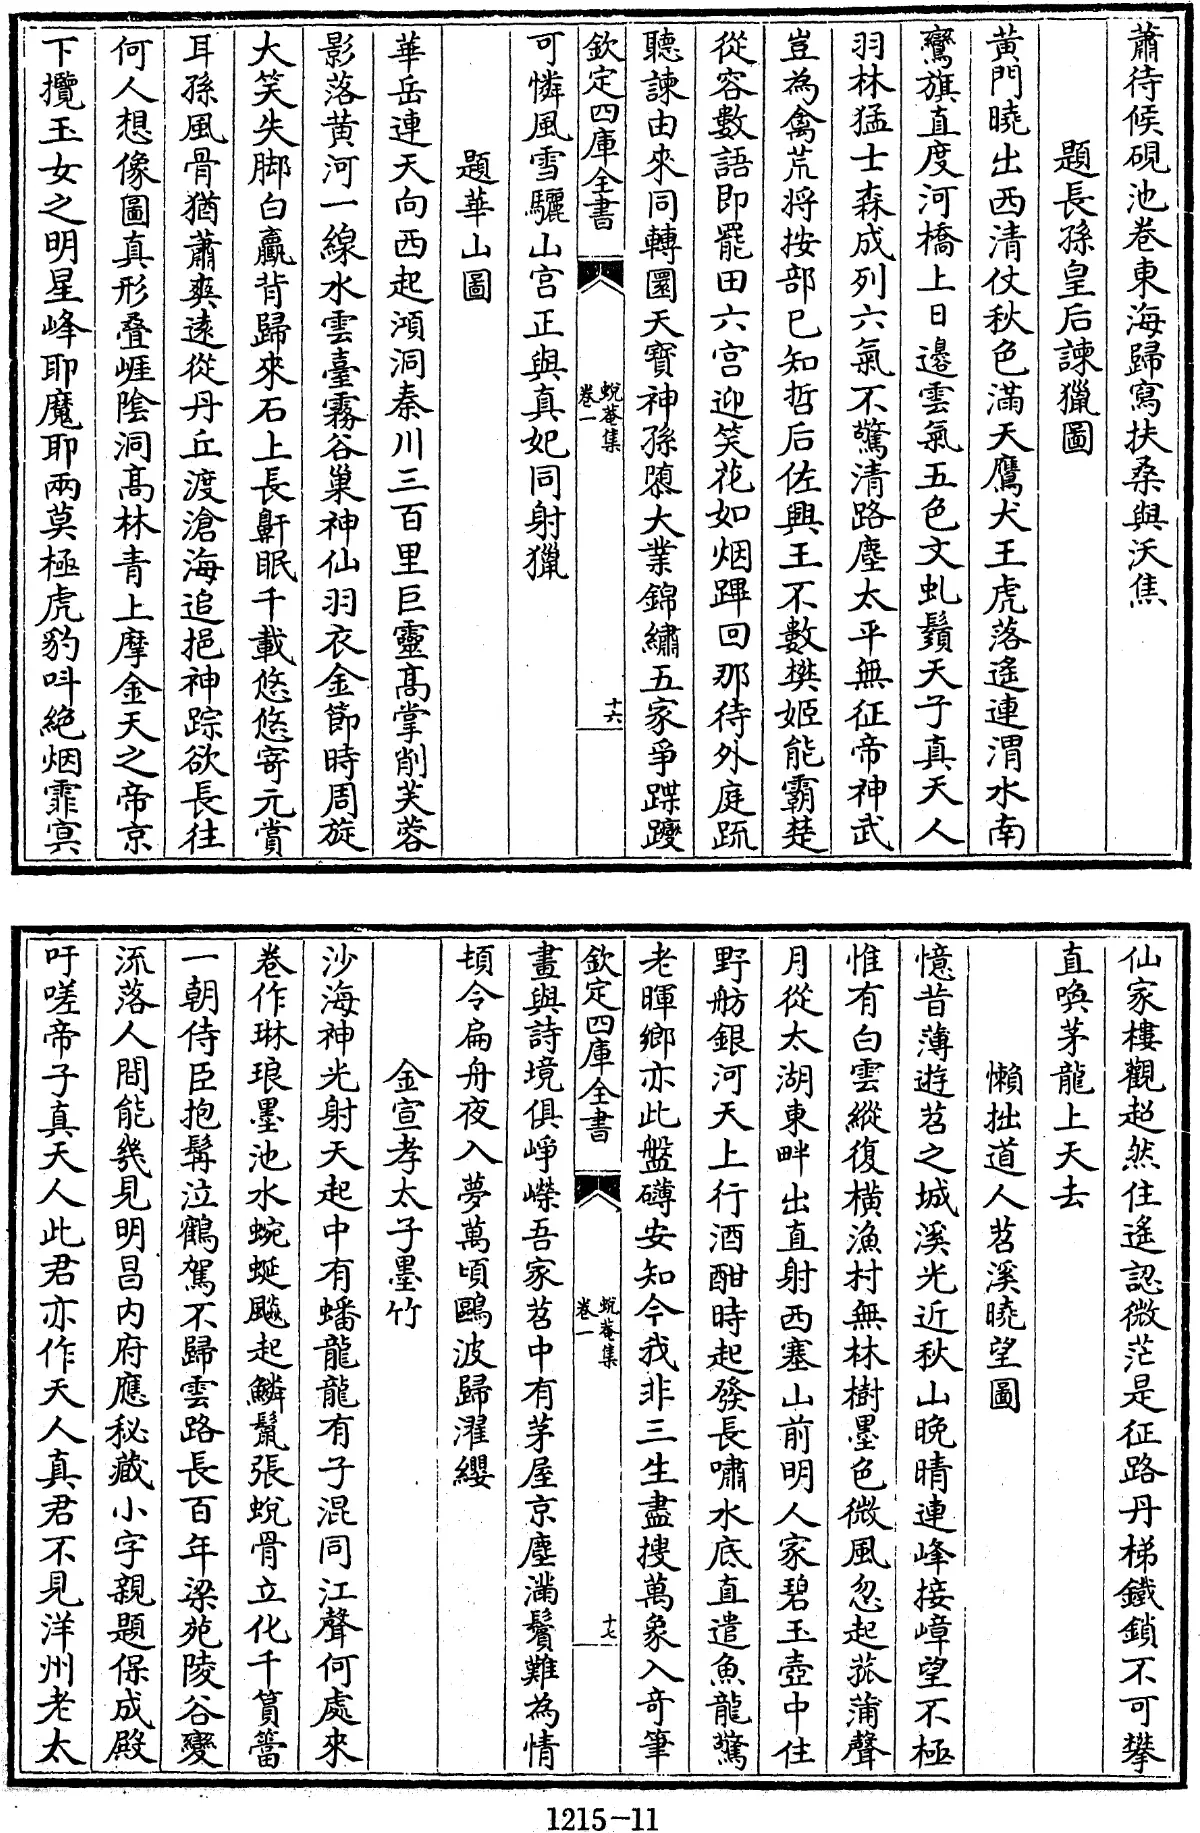 蕭待候硯池卷東海歸寫扶桑與沃焦
題長孫皇后諫獵圖
黃門曉出西清仗秋色滿天鷹犬王虎落遙連渭水南
鸞旗直度河橋上日邊雲氣五色文虬鬚天子真天人
羽林猛士森成列六氣不驚清路塵太平無征帝神武
豈為禽荒将按部已知哲后佐興王不數樊姬能霸楚
從容數語即罷田六宫迎笑花如烟蹕回那待外庭疏
聽諫由來同轉圜天寶神孫隳大業錦繡五家爭蹀躞
欽定四庫全書
蛻菴集
卷一
十六
可憐風雪驪山宫正與真妃同射獵
題華山圖
華岳連天向西起澒洞秦川三百里巨靈高掌削芙蓉
影落黄河一線水雲臺霧谷巢神仙羽衣金節時周旋
大笑失脚白驘背歸來石上長鼾眠千載悠悠寄元賞
耳孫風骨猶蕭爽遠從丹丘渡滄海追挹神踪欲長往
何人想像圖真形疊崕陰洞高林青上摩金天之帝京
下攬玉女之明星峰耶魔耶兩莫極虎豹呌絶烟霏冥
仙家樓觀超然住遙認微茫是征路丹梯鐵鎖不可攀
直喚茅龍上天去
懶拙道人苕溪曉望圖
憶昔薄遊苕之城溪光近秋山晩晴連峰接嶂望不極
惟有白雲縱復橫漁村無林樹墨色微風忽起菰蒲聲
月從太湖東畔出直射西塞山前明人家碧玉壺中住
野舫銀河天上行酒酣時起發長嘯水底直遣魚龍驚
老暉鄉亦此盤礴安知今我非三生盡搜萬象入奇筆
欽定四庫全書
蛻菴集
卷一
十七
畫與詩境俱崢嶸吾家苕中有茅屋京塵滿鬢難為情
頃令扁舟夜入夢萬頃鷗波歸濯纓
金宣孝太子墨竹
沙海神光射天起中有蟠龍龍有子混同江聲何處來
卷作琳琅墨池水蜿蜒颷起鱗鬣張蛻骨立化千篔簹
一朝侍臣抱髯泣鶴駕不歸雲路長百年梁苑陵谷變
流落人間能幾見明昌内府應秘藏小字親題保成殿
吁嗟帝子真天人此君亦作天人真君不見洋州老太
1215-11